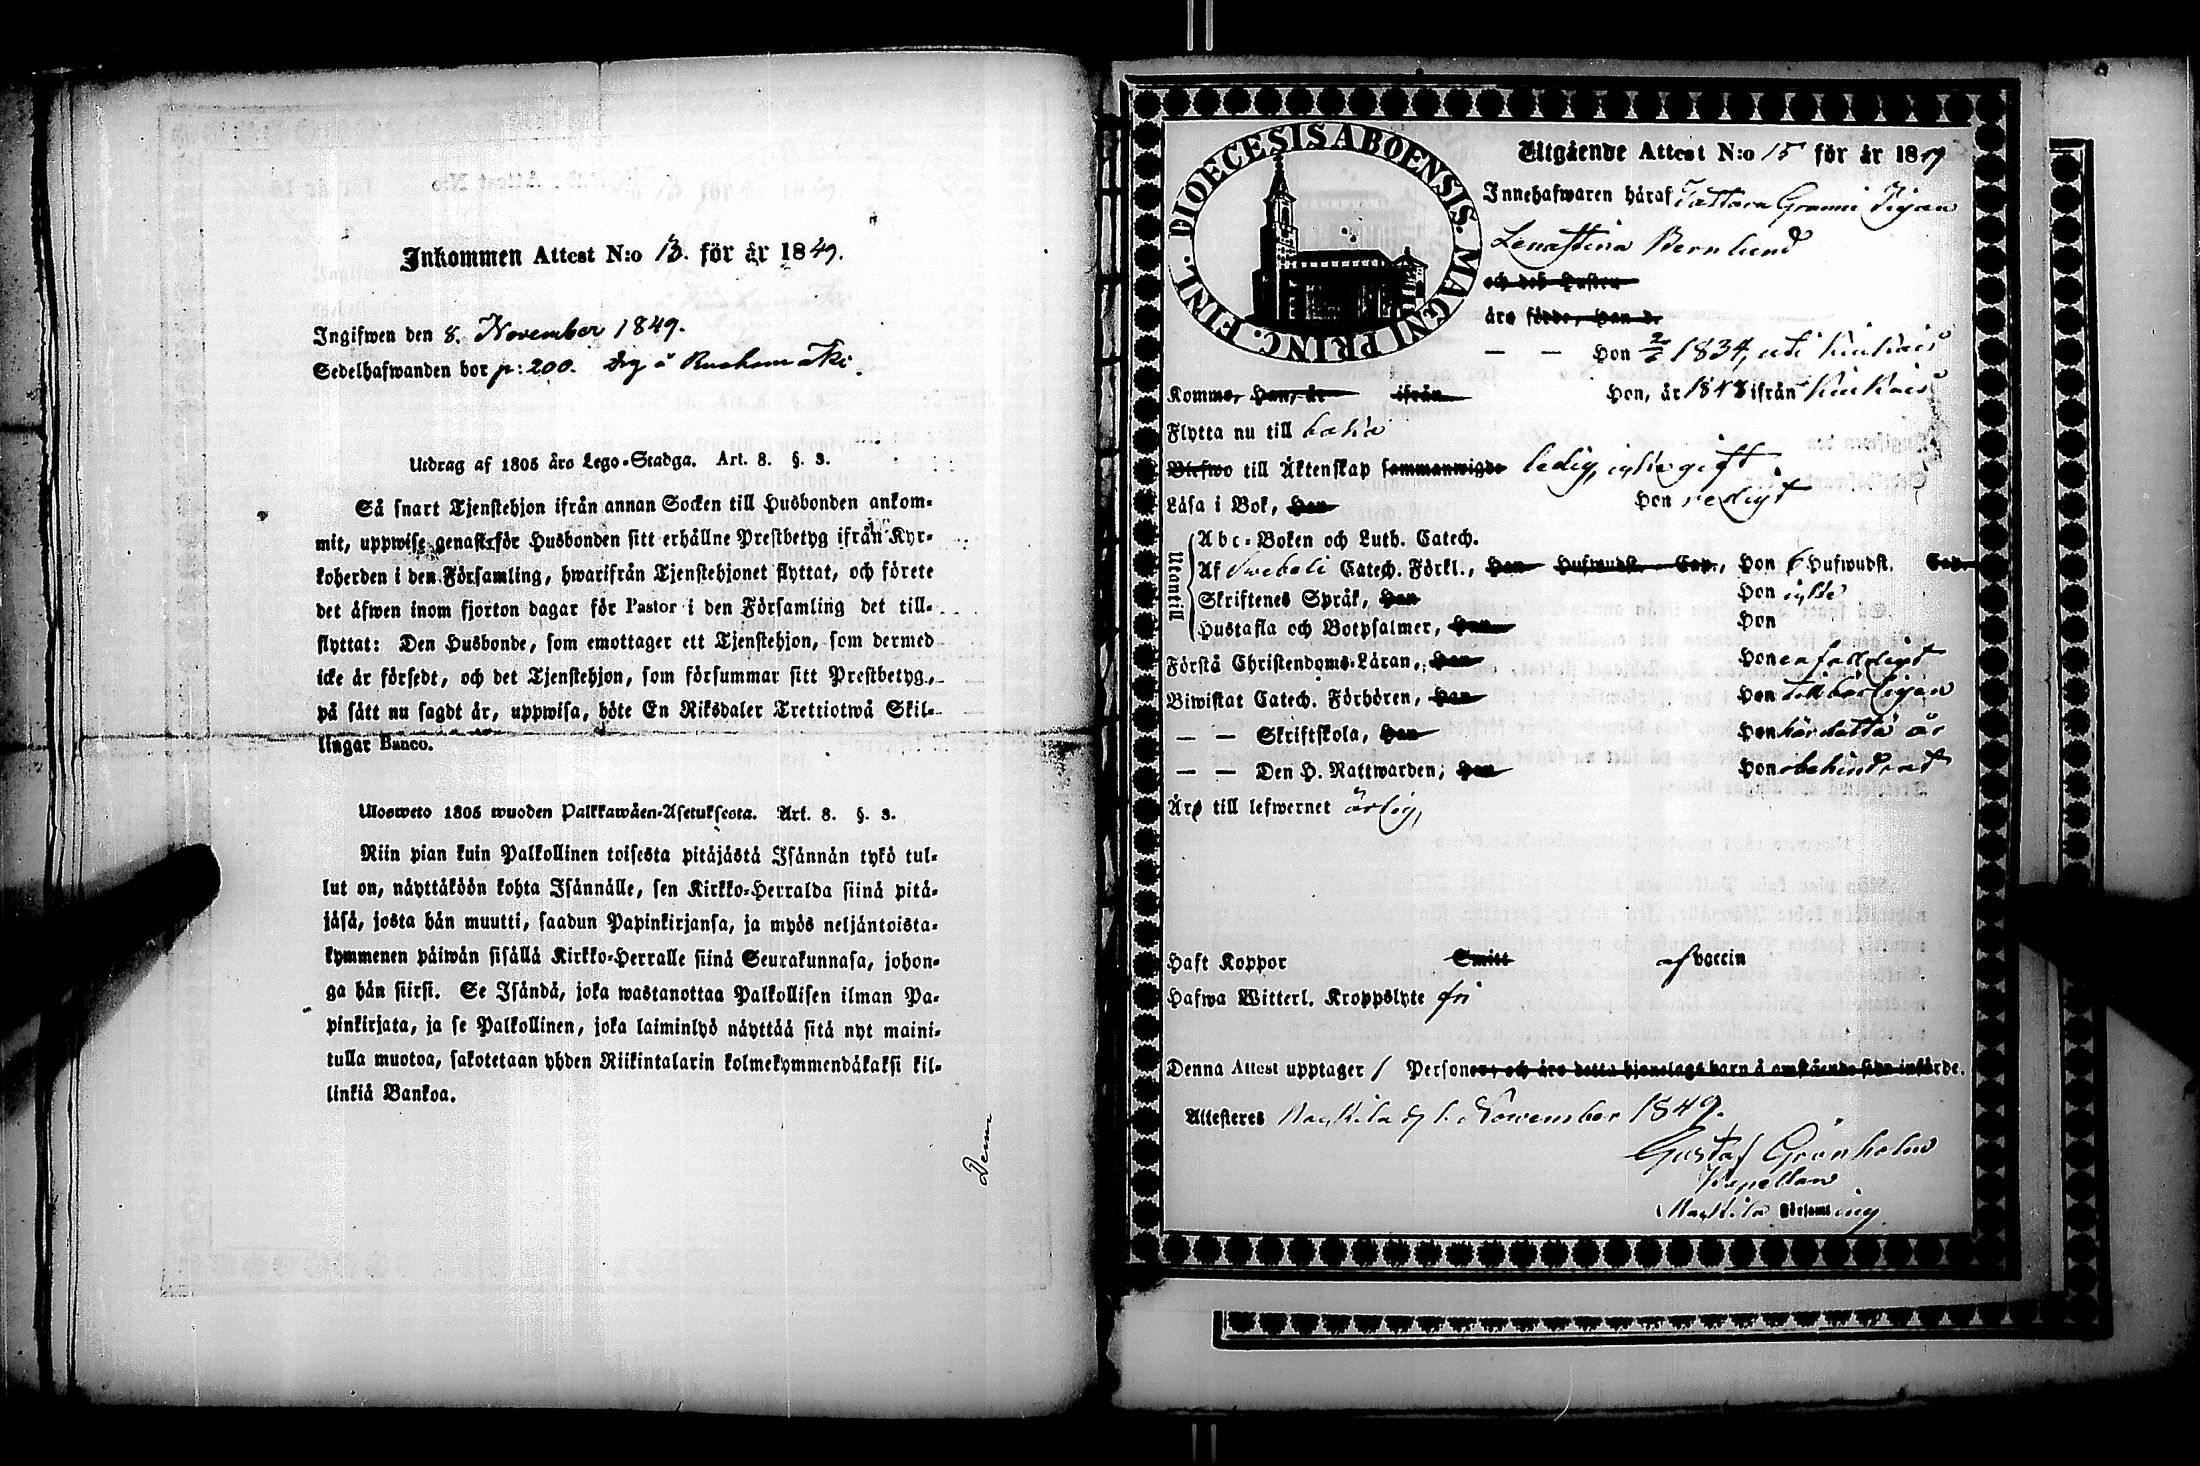 Inkommen Attest N:o 13. för år 1849.
Ingifwen den 8. November 1849.
Sedelhafwanden bor p: 200.
Utdrag af 1805 års Lego-Stadga. Art. 8. §. 3.
Så snart Tjenstehjon ifrån annan Socken till Husbonden ankom-
mit, uppwise genast för Husbonden sitt erhållne Prestbetyg ifrån Kyr-
koherden i den Församling, hwarifrån Tjenstehjonet flyttat, och förete
det äfwen inom fjorton dagar för Pastor i den Församling det till-
flyttat: Den Husbonde, som emottager ett Tjenstehjon, som dermed
icke är försedt, och det Tjenstehjon, som försummar sitt Prestbetyg,
på sätt nu sagdt är, uppwisa, böte En Riksdaler Trettiotwå Skil-
lingar Banco.
Ulosweto 1805 wuoden Palkkawäen-Asetuksesta. Art. 8. §. 3.
Niin pian kuin Palkollinen toisesta pitäjästä Isännän tykö tul-
lut on, näyttäköön kohta Isännälle, sen Kirkko-Herralda siinä pitä-
jäsä, josta hän muutti, saadun Papinkirjansa, ja myös neljäntoista-
kymmenen päiwän sisällä Kirkko-Herralle siinä Seurakunnasa, johon-
ga hän siirsi. Se Isändä, joka wastanottaa Palkollisen ilman Pa-
pinkirjata, ja se Palkollinen, joka laiminlyö näyttää sitä nyt maini-
tulla muotoa, sakotetaan yhden Riikintalarin kolmekymmendäkaksi kil-
linkiä Bankoa.
DIOECESIS ABOENSIS. MAGNI PRINC. FINL.
Utgående Attest N:o 15 för år 1849
Innehafwaren häraf
Lenastina Bernlund
och deß Hustru
äro födde, Han d.
— — Hon 1834, uti Kiukais
Komme, Han, år ifrån Hon, år 1848 ifrån Kiukais
Flytta nu till
Blefwo till Äktenskap sammanwigde ledig, icke gift
Läsa i Bok, Han Hon redigt
Utantill
Abc-Boken och Luth. Catech.
Af Swebeli Catech. Förkl., Han Hufwudst. Cap., Hon 6 Hufwudst. Cap.
Skriftenes Språk, Han Hon icke
Hustafla och Botpsalmer, Han Hon
Förstå Christendoms-Läran, Han Hon enfaldigt
Biwistat Catech. Förhören, Han Hon tillbörligen
— — Skriftskola, Han Hon
— — Den H. Nattwarden, Han Hon obehindrad
Äro till lefwernet ärlig,
Haft Koppor Smitt af Vaccin
Hafwa Witterl. Kroppslyte fri
Denna Attest upptager 1 Personer, och äro detta hjonelags barn å omstående sida införde.
Attesteras d. 1. November 1849.
Gustaf Grönholm
Kapellan
Församling